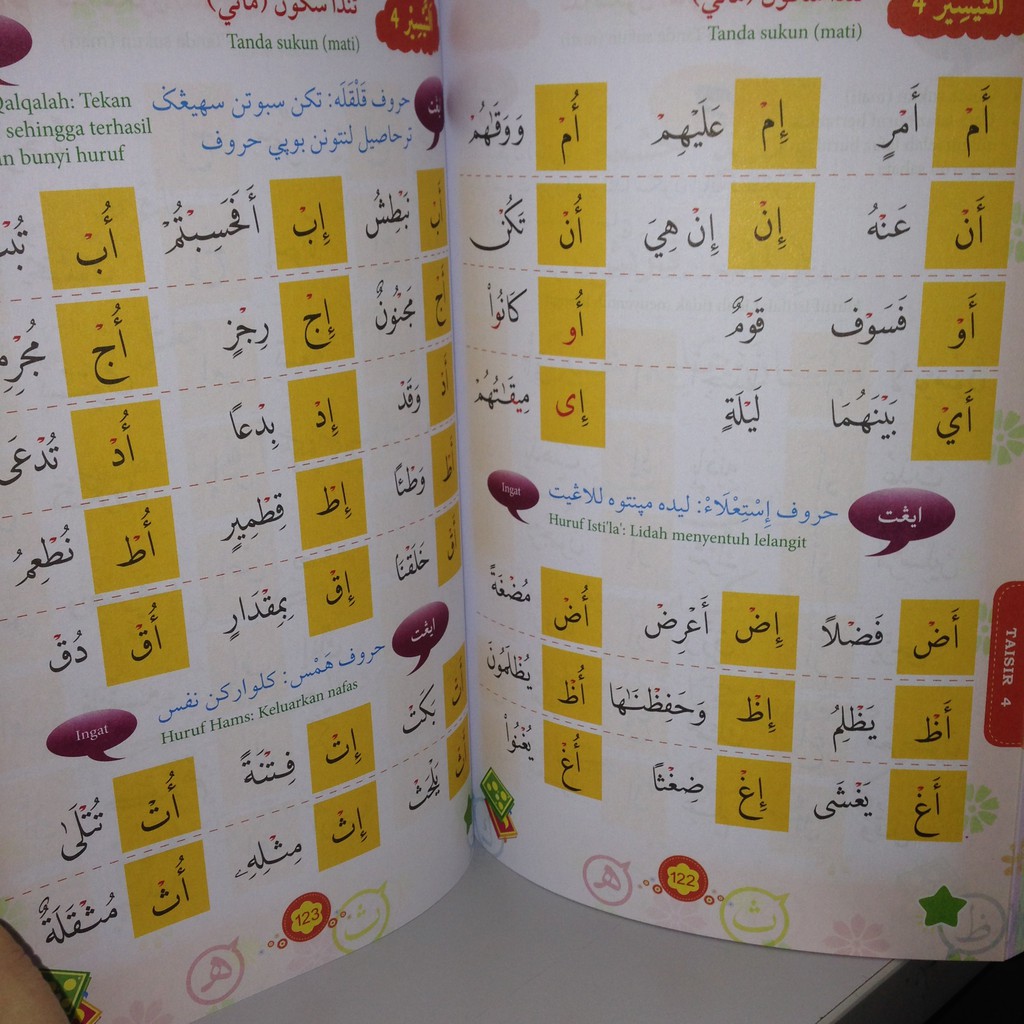 التيسير 4
Tanda sukun (mati)
أَمْ أَمْرٍ إِمْ عَلَيْهِمْ أُمْ وَوَقَىٰهُمْ
أَنْ عَنْهُ إِنْ إِنْ هِيَ أُنْ تَكُنْ
أَوْ فَسَوْفَ قَوْمٌ أُو كَانُوا۟
أَيْ بَيْنَهُمَا لَيْلَةٍ إِى مِيقَـٰتُهُمْ
ايڠت
حروف إِسْتِعْلَاءْ: ليده مڽنتوه للاڠيت
Huruf Isti'la': Lidah menyentuh lelangit
Ingat
أَضْ فَضْلًا إِضْ أَعْرِضْ أُضْ مُضْغَةً
أَظْ يَظْلِمُ إِظْ وَحَفِظْنَـٰهَا أُظْ يُظْلَمُونَ
أَغْ يَغْشَى إِغْ ضِغْثًا أُغْ يُغْنُوا۟
TAISIR 4
122
4
تندا سكون (ماتي)
Tanda sukun (mati)
ايڠت
حروف قَلْقَلَه: تكن سبوتن سهيڠݢ
ترحاصيل لنتونن بوڽي حروف
Qalqalah: Tekan
sehingga terhasil
bunyi huruf
أَبْ نَبْطِشُ إِبْ أَفَحَسِبْتُمْ أُبْ
أَجْ مَجْنُونٌ إِجْ رِجْزٍ أُجْ
أَدْ وَقَدْ إِدْ بِدْعًا أُدْ تُدْعَى
أَطْ وَطْـًٔا إِطْ قِطْمِيرٍ أُطْ نُطْعِمُ
أَقْ خَلَقْنَا إِقْ بِمِقْدَارٍ أُقْ ذُقْ
ايڠت
حروف هَمْس: كلواركن نفس
Huruf Hams: Keluarkan nafas
Ingat
أَتْ بَكَتْ إِتْ فِتْنَةً أُتْ تُتْلَىٰ
أَثْ يَلْهَثْ إِثْ مِثْلِهِۦ أُثْ مُثْقَلَةٌ
123